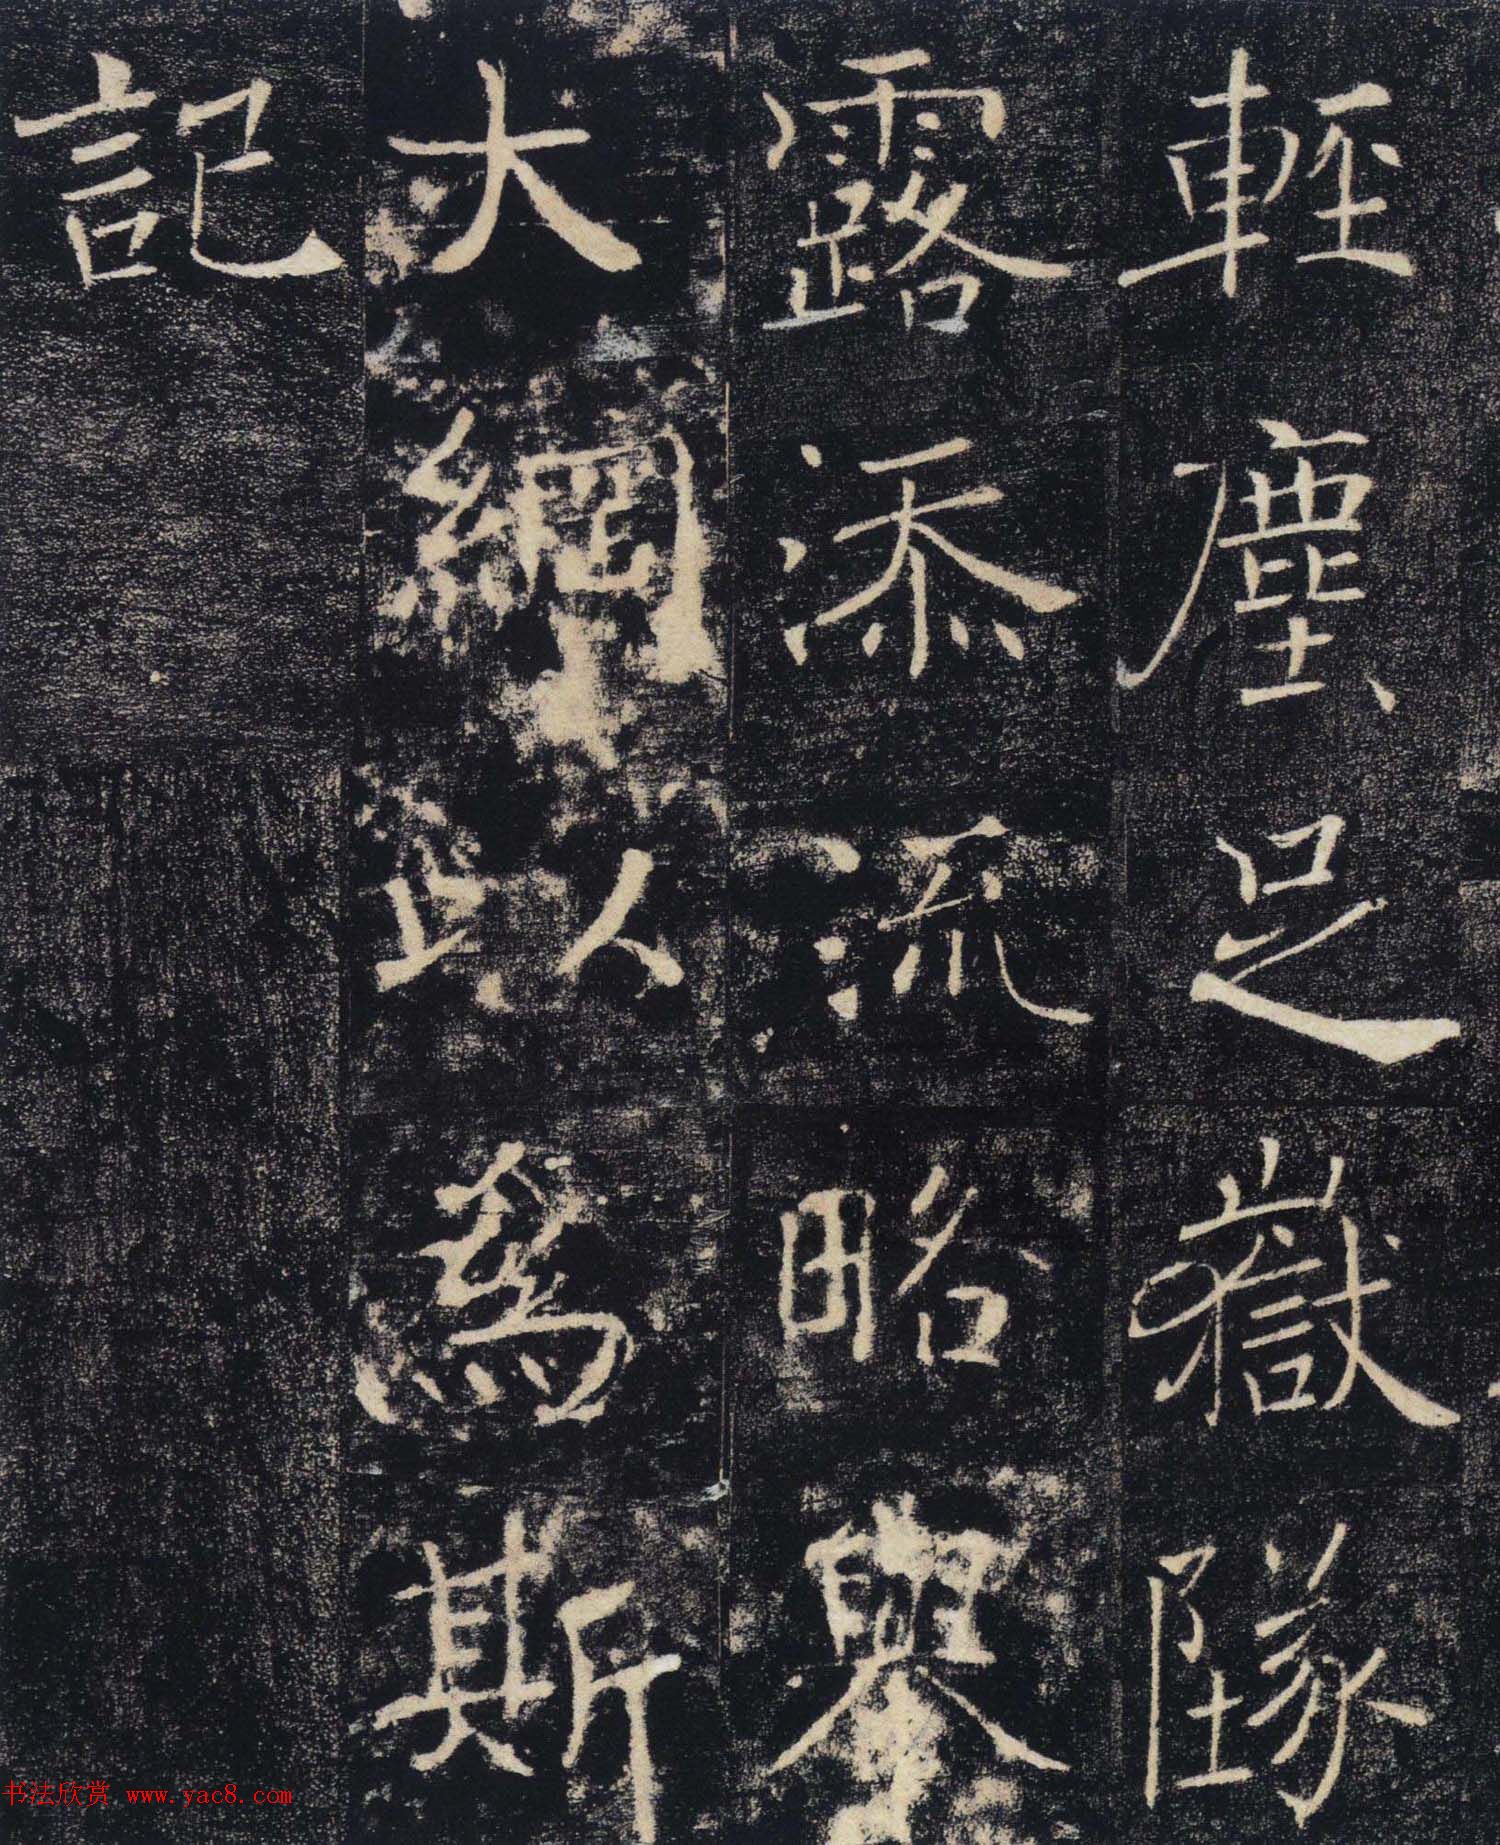 輕塵足嶽墜
露添流略舉
大綱以爲斯
記
书法欣赏 www.yac8.com